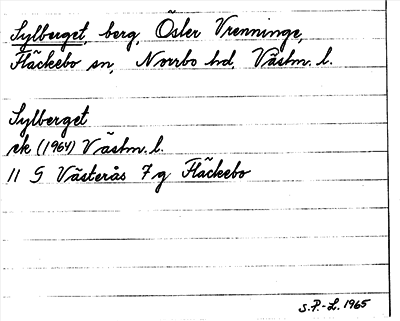 Sylberget, berg, Öster Vrenninge,
Fläckebo sn, Norrbo hd, Västm. l.
Sylberget
ek (1964) Västm. l.
11 G Västerås 7 g Fläckebo
S.P.-L. 1965